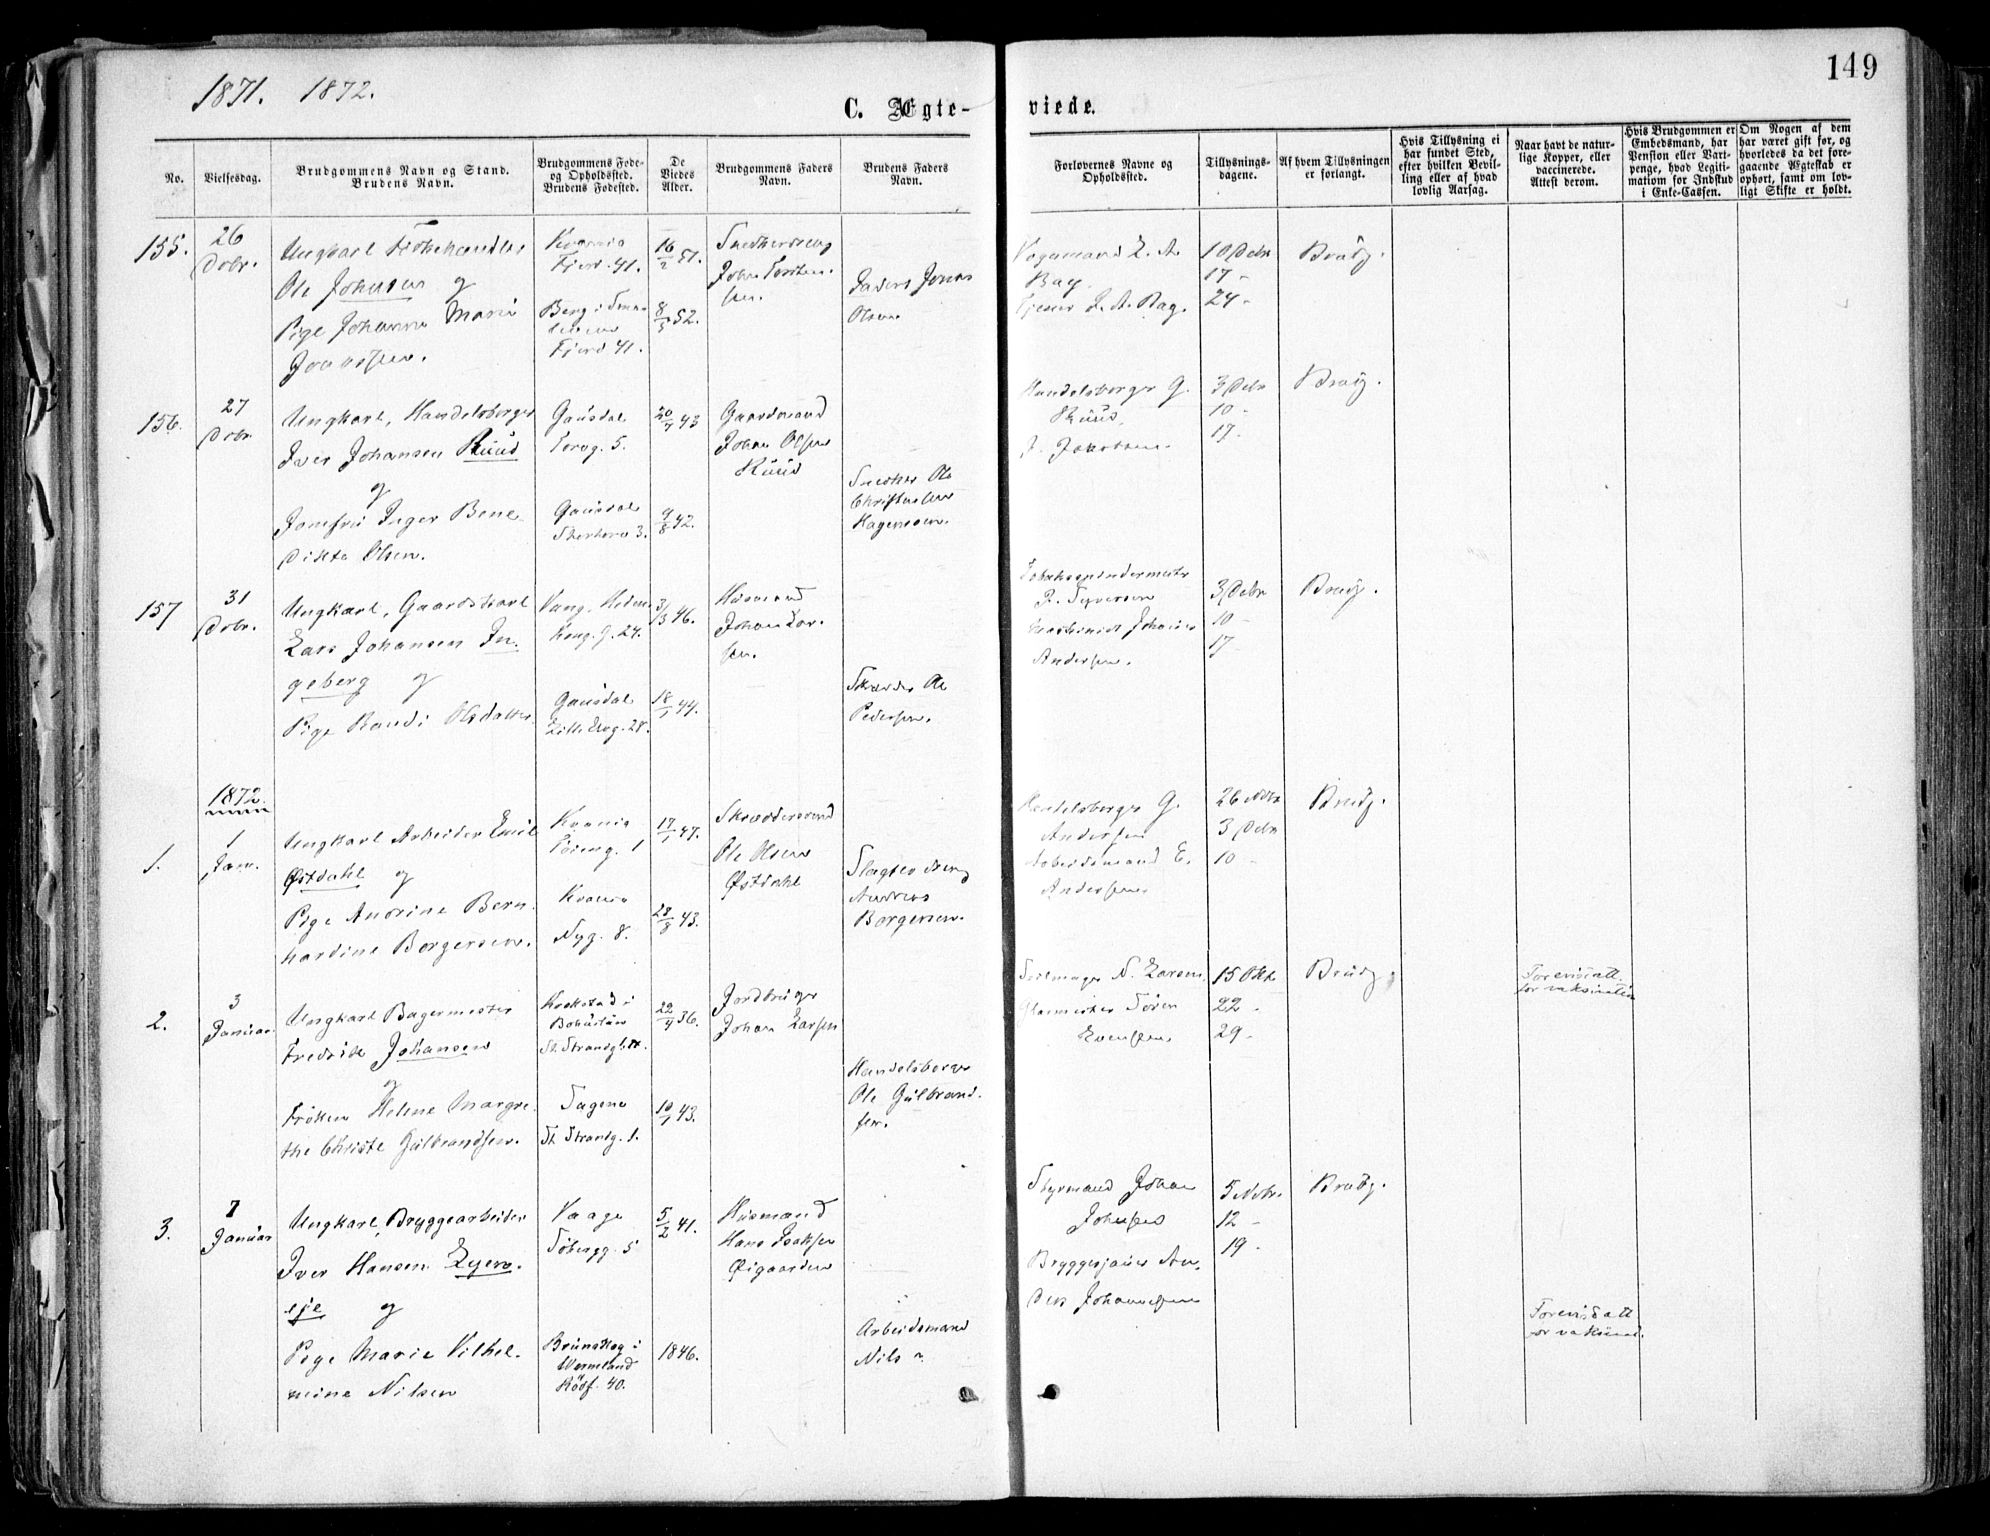 149
1871. 1872.
C. Ægte-
viede.
No.
Vielsesdag.
Brudgommens Navn og Stand.
Brudens Navn.
Brudgommens Føde-
og Opholdssted.
Brudens Fødested.
De
Viedes
Alder.
Brudgommens Faders
Navn.
Brudens Faders
Navn.
Forlovernes Navne og
Opholdssted.
Tillysnings-
dagene.
Af hvem Tillysningen
er forlangt.
Hvis Tillysning ei
har fundet Sted,
efter hvilken Bevil-
ling eller af hvad
lovlig Aarsag.
Naar havt de natur-
lige Kopper, eller
vaccinerede.
Attest derom.
Hvis Brudgommen er
Embedsmand, har
Pension eller Vart-
penge, hvad Legiti-
mation for Indskud
i Enke-Cassen.
Om Nogen af dem
har været gift før, og
hvorledes da det fore-
gaaende Ægteskab er
ophørt, samt om lov-
ligt Skifte er holdt.
155.
26
Dcbr.
Ungkarl Fiskehandler
Ole Johansen og
Pige Johanne Marie
Fjerd. 41.
Berg i Smaa-
Fjerd 41.
16/2 51.
8/5 52.
Johan
sen.
Jonas
Olsen
Bay.
10 Debr
17 -
24 -
Brudg.
156.
27
Dcbr.
Ungkarl, Handelsborger
Iver Johansen Ruud
og
Jomfru Inger Bene-
dikte Olsen.
Gausdal
Torvg. 5.
Gausdal
3.
20/7 43
4/8 42.
Gaardmand
Johan Olsen
Ruud
Snedker Ole
Christensen
Hagensen.
Handelsborger G.
Ruud.
J. Jakobsen.
3 Debr
10 -
17 -
Brudg.
157
31
Dcbr.
Ungkarl, Gaardskarl
Lars Johansen In-
geberg og
Pige Randi Olsdatter
Vang, Hedem.
Kong. G. 24.
Gausdal
Lille 28.
3/3 46.
18/1 44.
Husmand
Johan Lar-
sen.
Skrædder Ole
Pedersen.
J. Syversen
Johannes
Andersen.
3 Debr
10 -
17
Brudg.
1872.
1.
1
Jan.
Ungkarl Arbeider Emil
Østdahl og
Pige Andrine Bern-
hardine Borgersen.
Krania
1
Krania
Nyg. 8.
17/1 47.
28/8 43.
Skræddersvend
Ole Olsen
Østdahl
Slagtersvend
Andreas
Borgersen.
Handelsborger G.
Andersen
Arbeidsmand E.
Andersen
26 Novbr
3 Debr
10 -
Brudg.
2.
3
Januar
Ungkarl Bagermester
Fredrik Johansen
og
Frøken Helene Margre-
the Christe Gulbrandsen.
i
Bohuslän
Sagene
St. Strandg. 1.
22/4 36.
10/1 43.
Jordbruger
Johan Larsen
Handelsborger
Ole Gulbrand-
sen.
N. Larsen
Søren
Evensen.
15 Okt
22 -
29 -
Brudg.
Forevist att.
for vaksination
3.
7
Januar
Ungkarl, Bryggearbeider
Iver Hansen Lyen-
eje og
Pige Marie Vilhel-
mine Nilsen
Vaage
5
Brunskog i
Wermland
Rødf. 40.
5/2 41.
1846.
Husmand
Hans Isaksen
Øigaarden
Arbeidsmand
Nils ?
Styrmand Johan
Johnsen
Bryggesjauer An-
ders Johannesen
5 Nvbr.
12 -
19 -
Brudg.
Forevist att
for vaksinat.